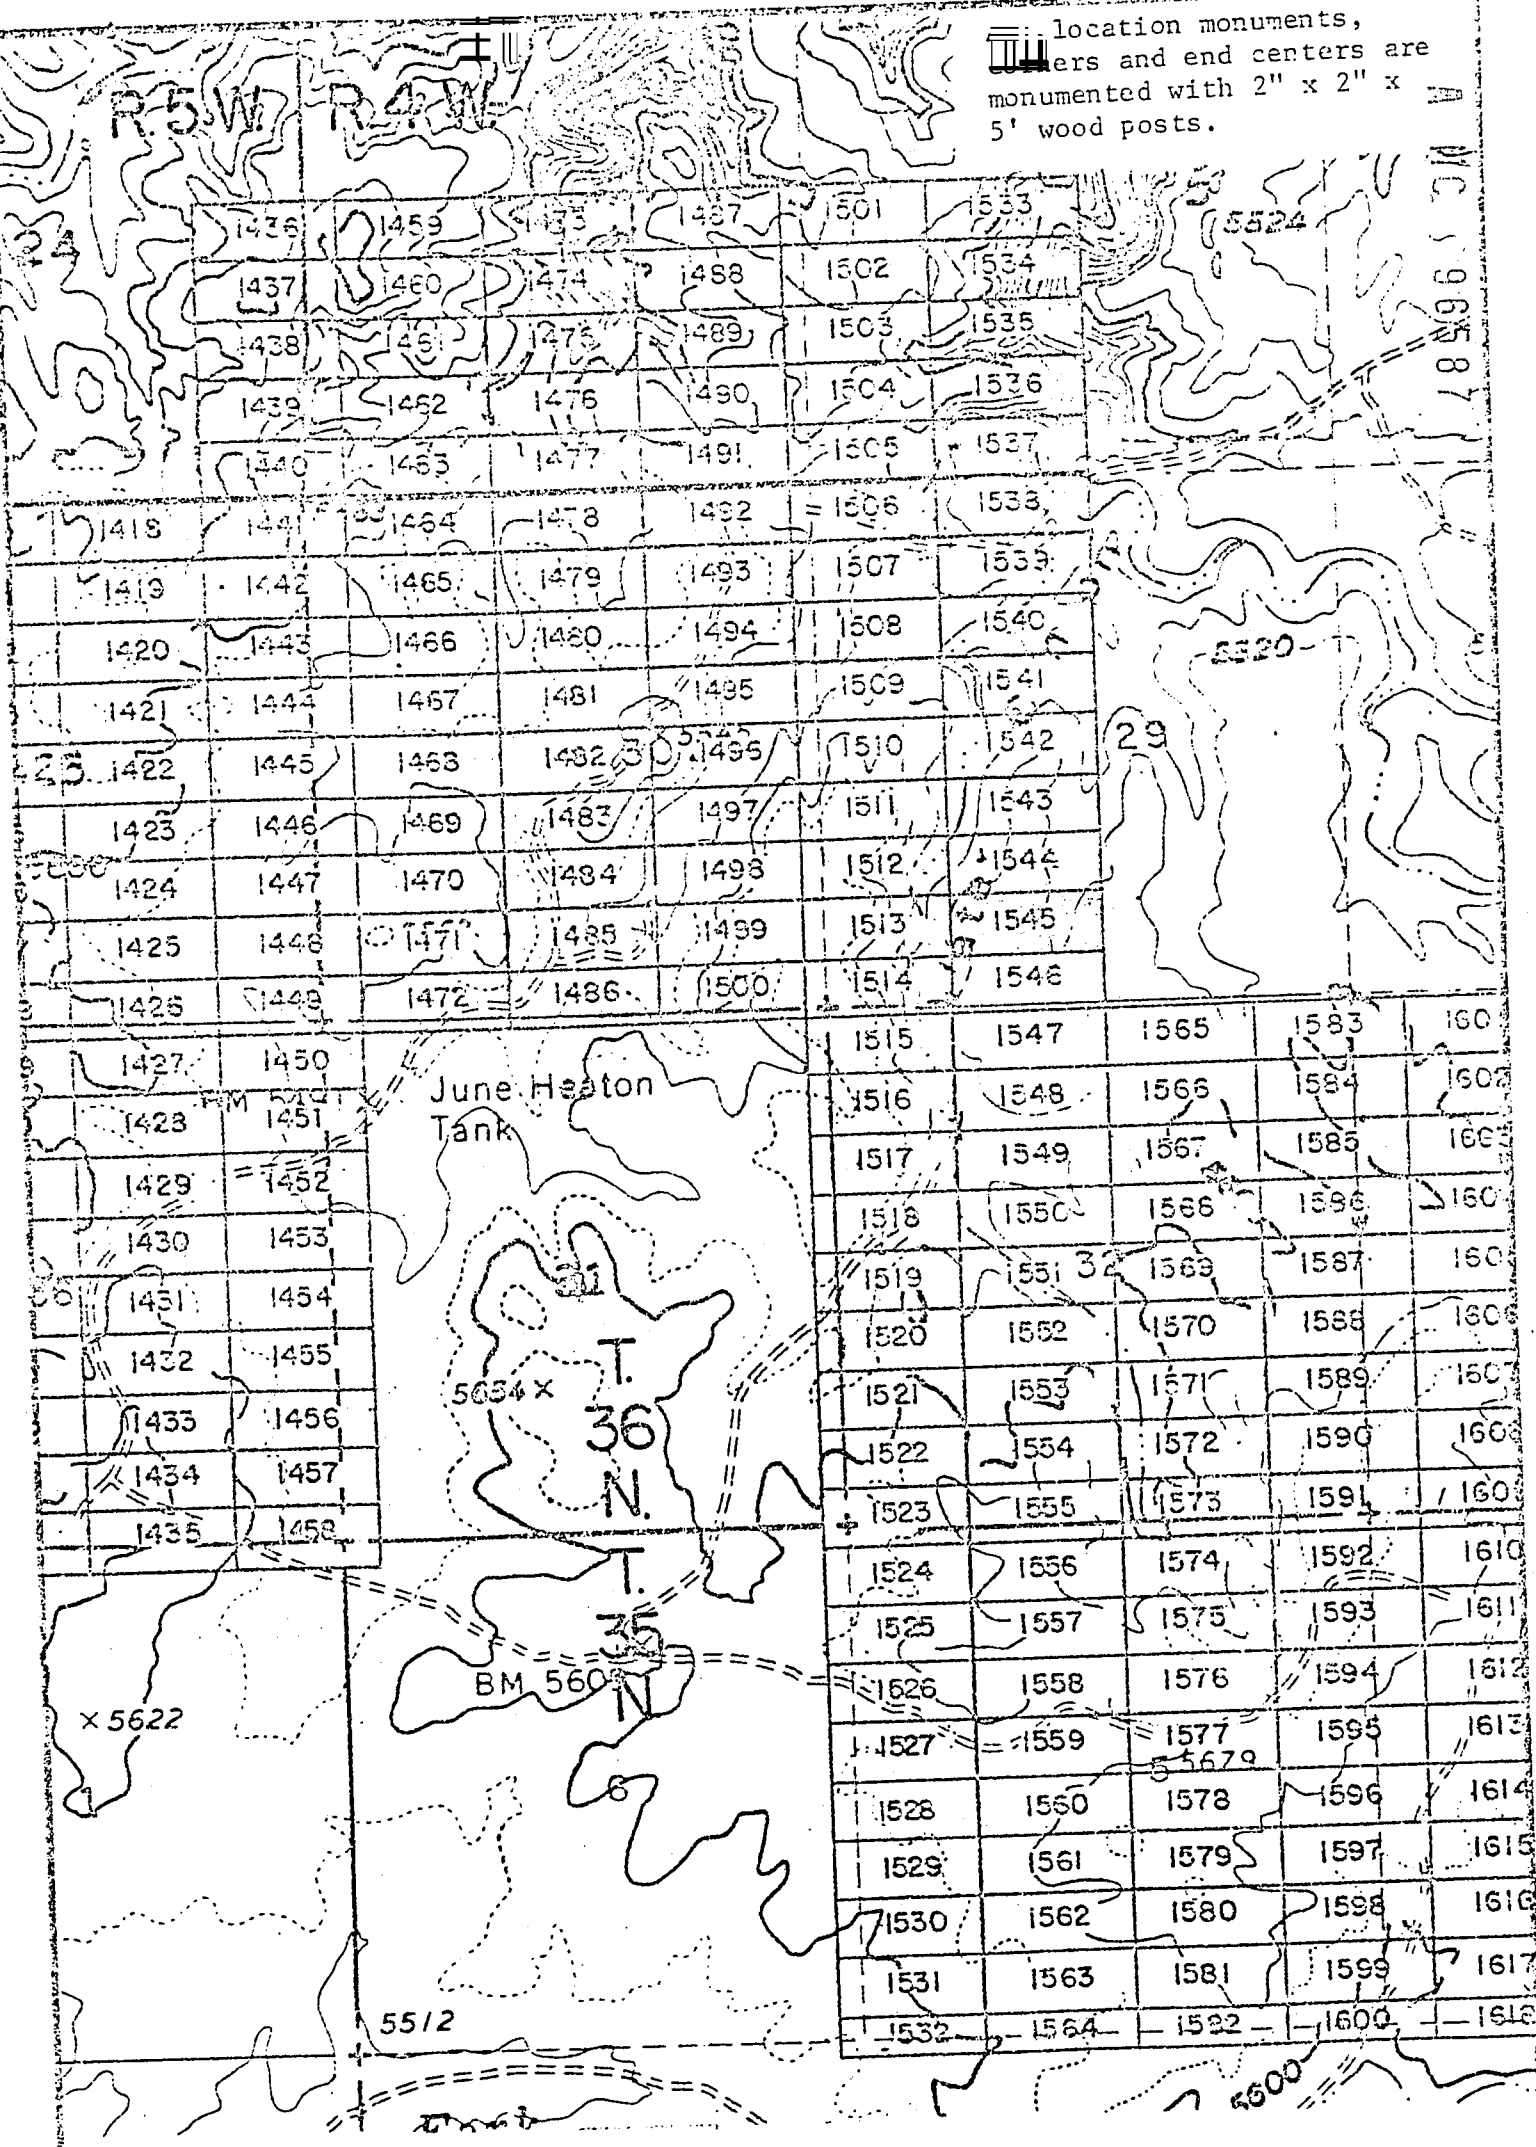 location monuments,
ers and end centers are
monumented with 2" x 2" x
5' wood posts.
R.5W. R.4W.
A MC 196587
24
5524
1436 1459 1473 1487 1501 1533
1437 1460 1474 1488 1502 1534
1438 1461 1475 1489 1503 1535
1439 1462 1476 1490 1504 1536
1440 1463 1477 1491 1505 1537
1418 1441 1464 1478 1492 1506 1538
1419 1442 1465 1479 1493 1507 1539
1420 1443 1466 1480 1494 1508 1540
5520
1421 1444 1467 1481 1495 1509 1541
25 1422 1445 1468 1482 30 1496 1510 1542 29
1423 1446 1469 1483 1497 1511 1543
1424 1447 1470 1484 1498 1512 1544
1425 1448 1471 1485 1499 1513 1545
1426 1449 1472 1486 1500 1514 1546
1427 1450 1515 1547 1565 1583 160
June Heaton
Tank
1428 1451 1516 1548 1566 1584 1602
1429 1452 1517 1549 1567 1585 1603
1430 1453 1518 1550 1568 1586 160
36 1431 1454 31 1519 1551 32 1569 1587 160
1432 1455 1520 1552 1570 1588 1606
5654 ×
1433 1456 1521 1553 1571 1589 1607
1434 1457 1522 1554 1572 1590 1608
1435 1458 1523 1555 1573 1591 160
T.
36
N.
T.
35
N
1524 1556 1574 1592 1610
1525 1557 1575 1593 1611
BM 560
1526 1558 1576 1594 1612
× 5622
1527 1559 1577 1595 1613
5 5679
1 6
1528 1560 1578 1596 1614
1529 1561 1579 1597 1615
1530 1562 1580 1598 1616
1531 1563 1581 1599 1617
5512
1532 1564 1582 1600 1618
5600